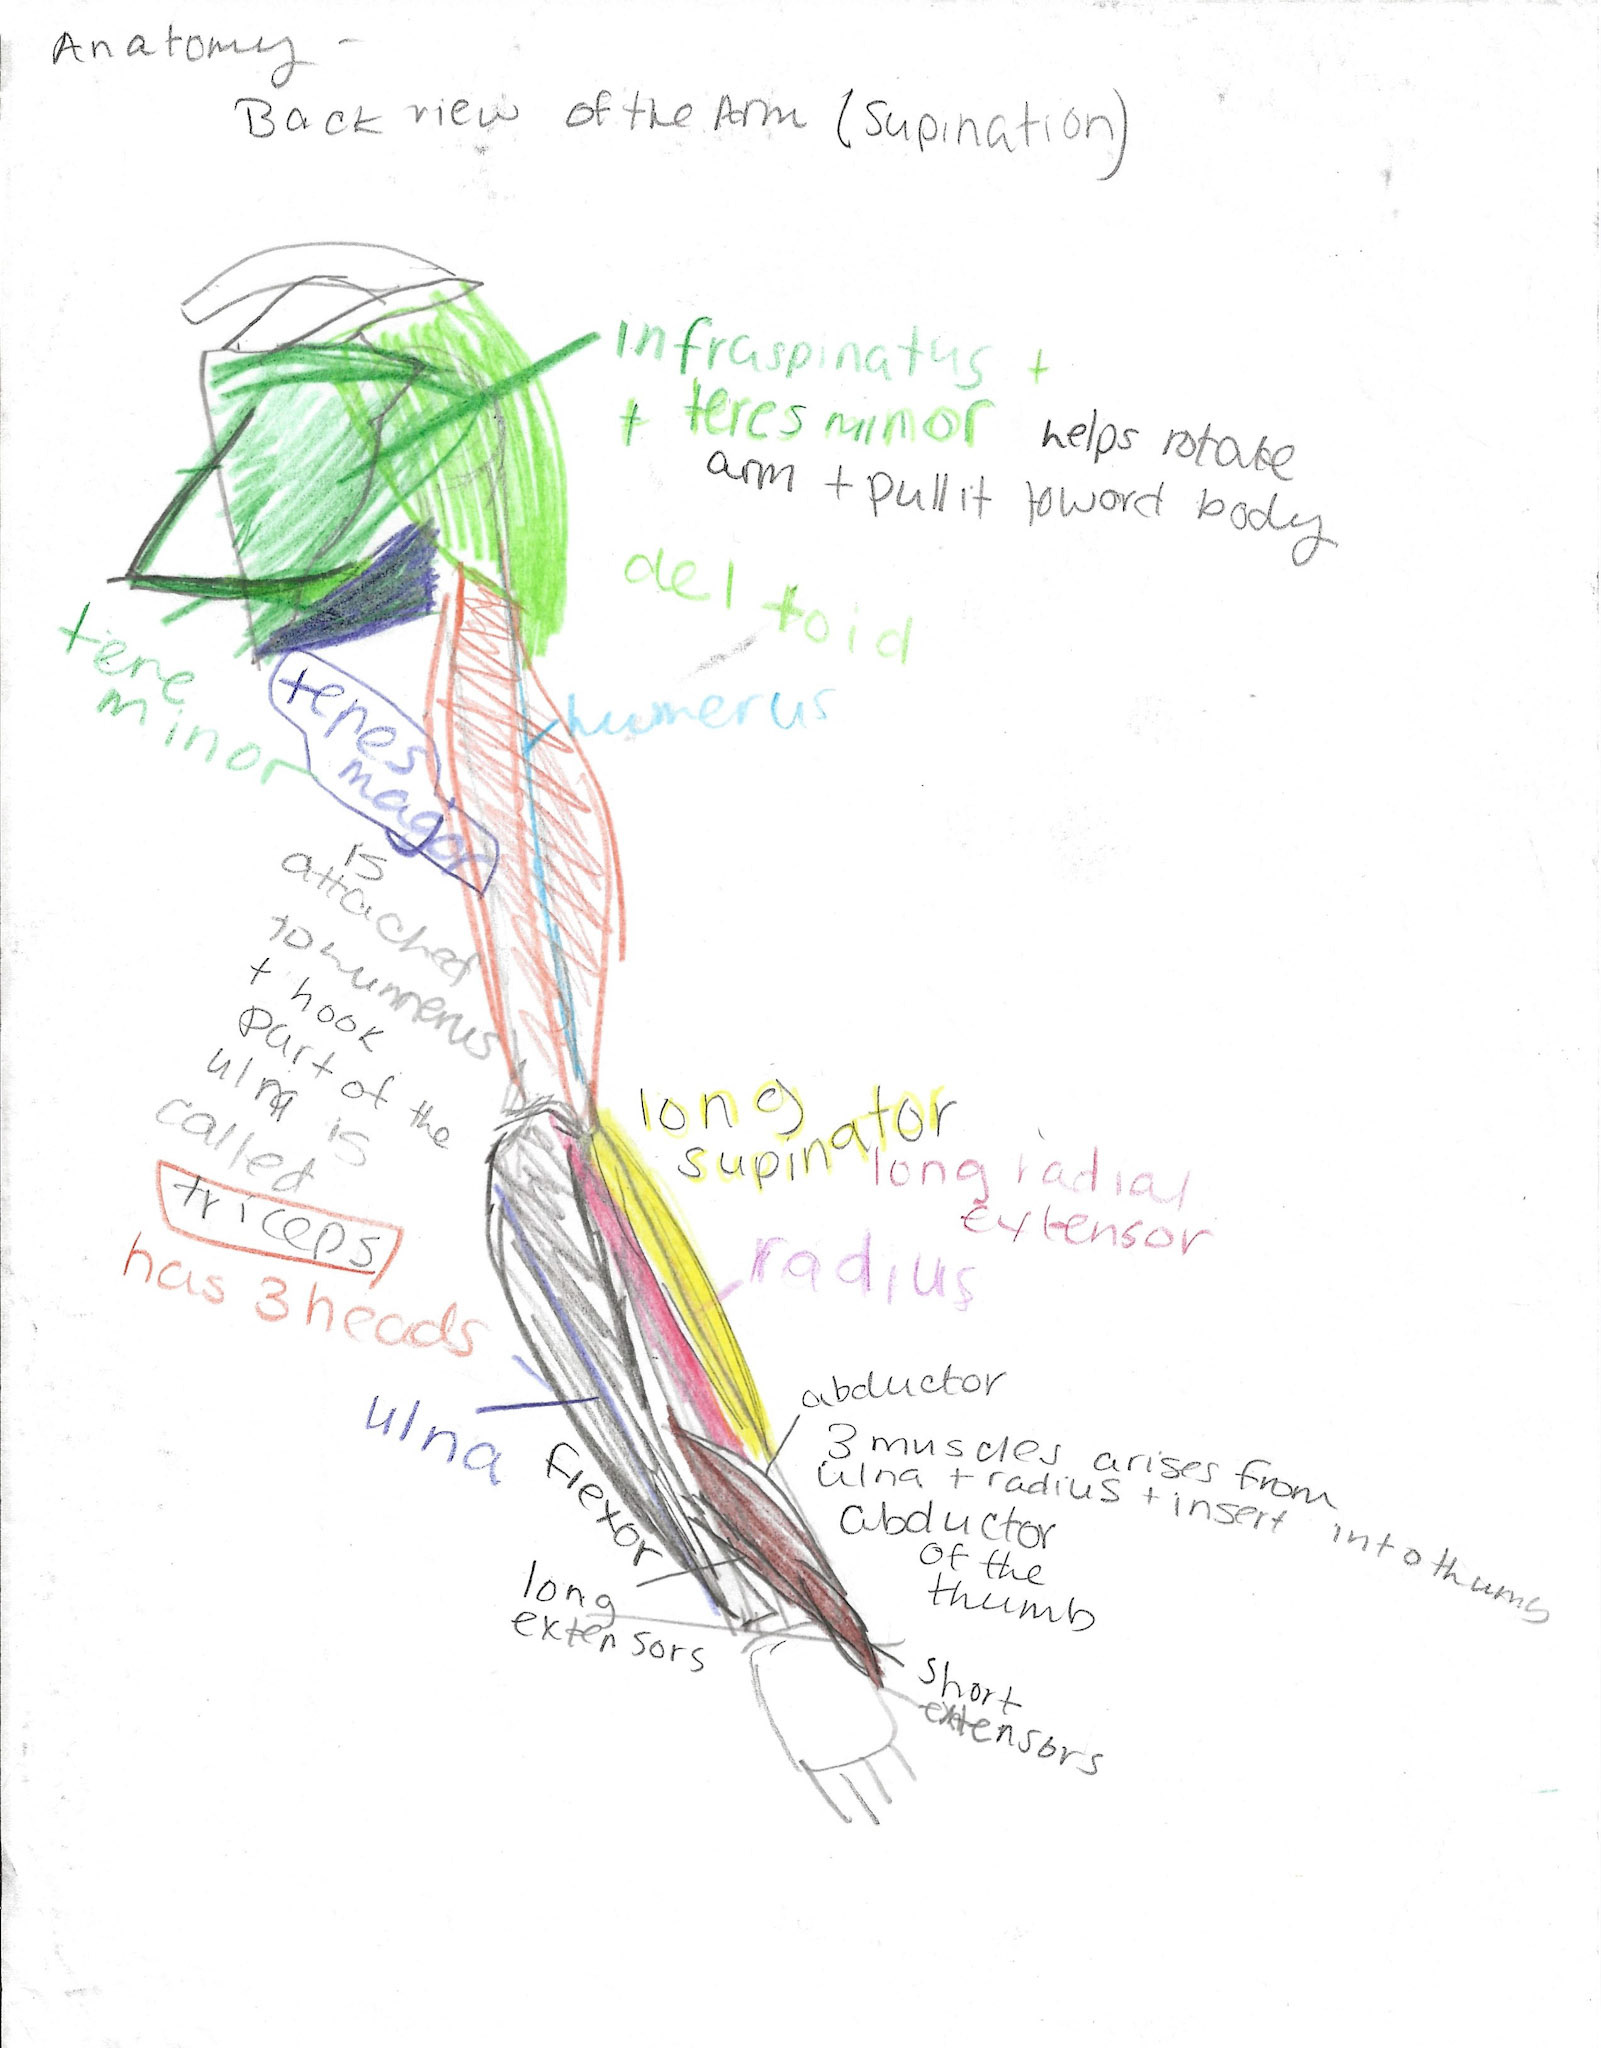 Anatomy -
Back view of the Arm (Supination)
infraspinatus +
+ teres minor helps rotate
arm + pull it toward body
deltoid
tere
minor
teres
magor
humerus
is
attached
to humerus
+ hook
part of the
ulna is
called
triceps
has 3 heads
long
supinator
long radial
extensor
radius
ulna
flexor
abductor
3 muscles arises from
ulna + radius + insert into thumb
abductor
of the
thumb
long
extensors
short
extensors